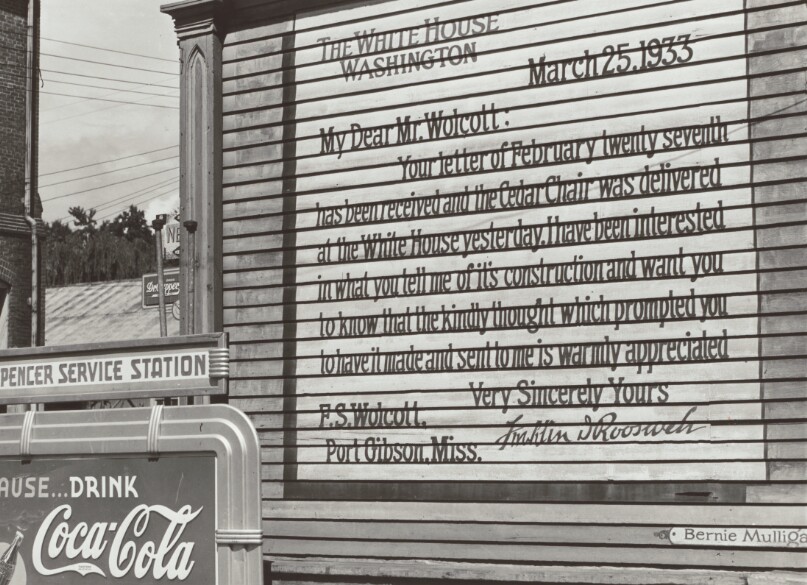 THE WHITE HOUSE
WASHINGTON
March 25, 1933
My Dear Mr. Wolcott:
Your letter of February twenty seventh
has been received and the Cedar Chair was delivered
at the White House yesterday. I have been interested
in what you tell me of it's construction and want you
to know that the kindly thought which prompted you
to have it made and sent to me is warmly appreciated
Very Sincerely Yours
Franklin D Roosevelt
F.S. Wolcott.
Port Gibson, Miss.
Bernie Mulliga
NE
Dr. Pepper
PENCER SERVICE STATION
AUSE...DRINK
Coca-Cola